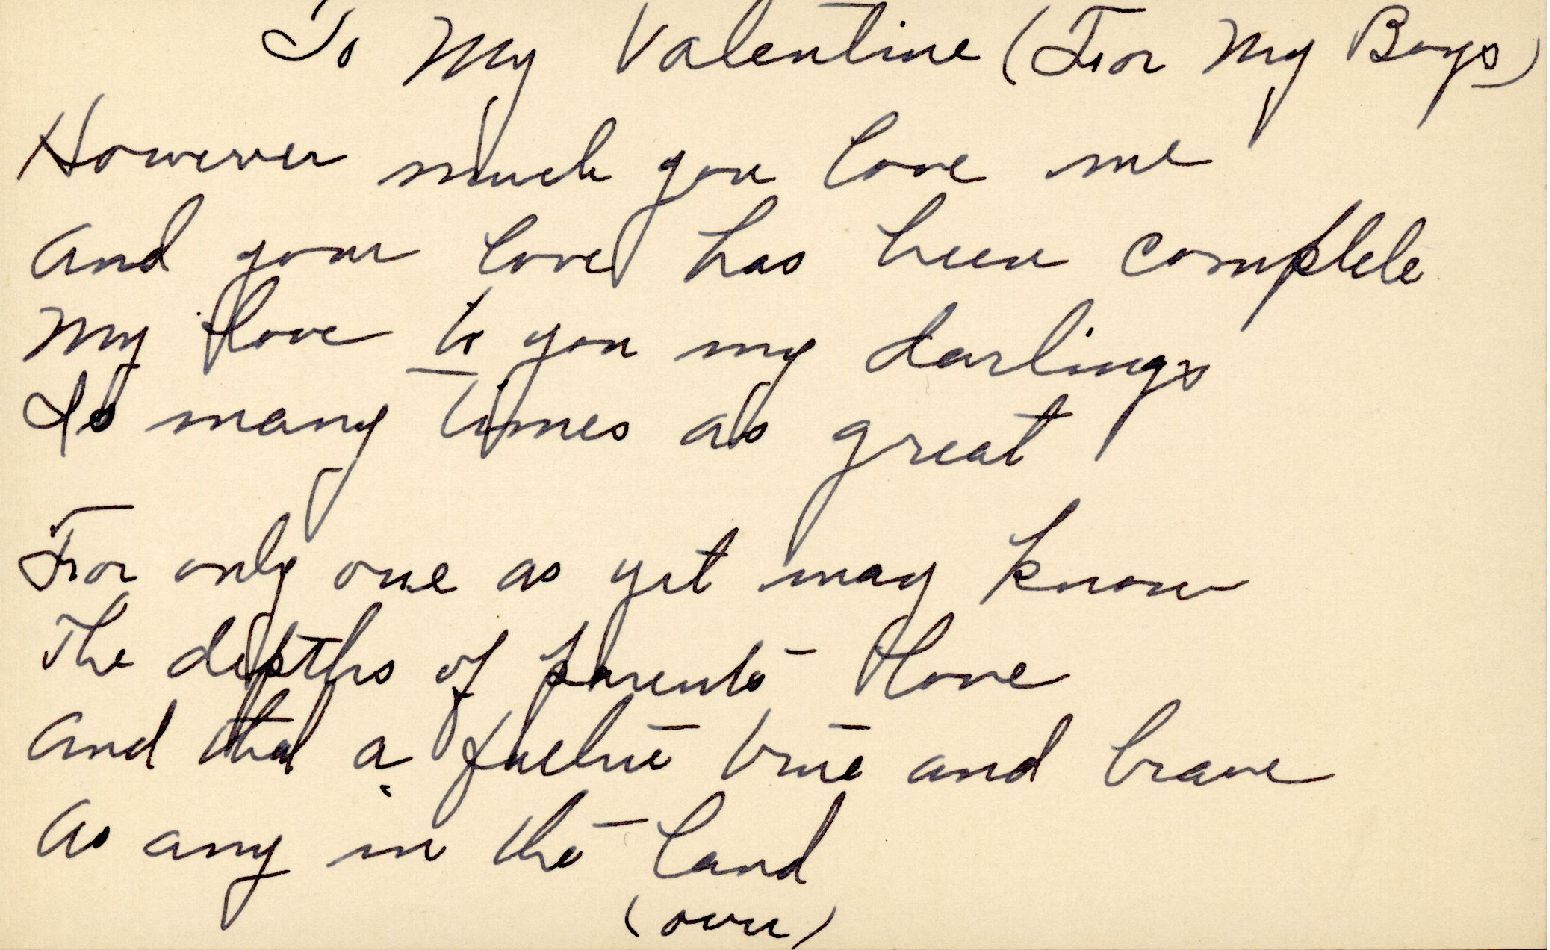 To My Valentine (For My Boys)
However much you love me
And your love has been complete
My love to you my darlings
Is many times as great
For only one as yet may know
The depths of parents love
And that a true and brave
As any in the land
(over)